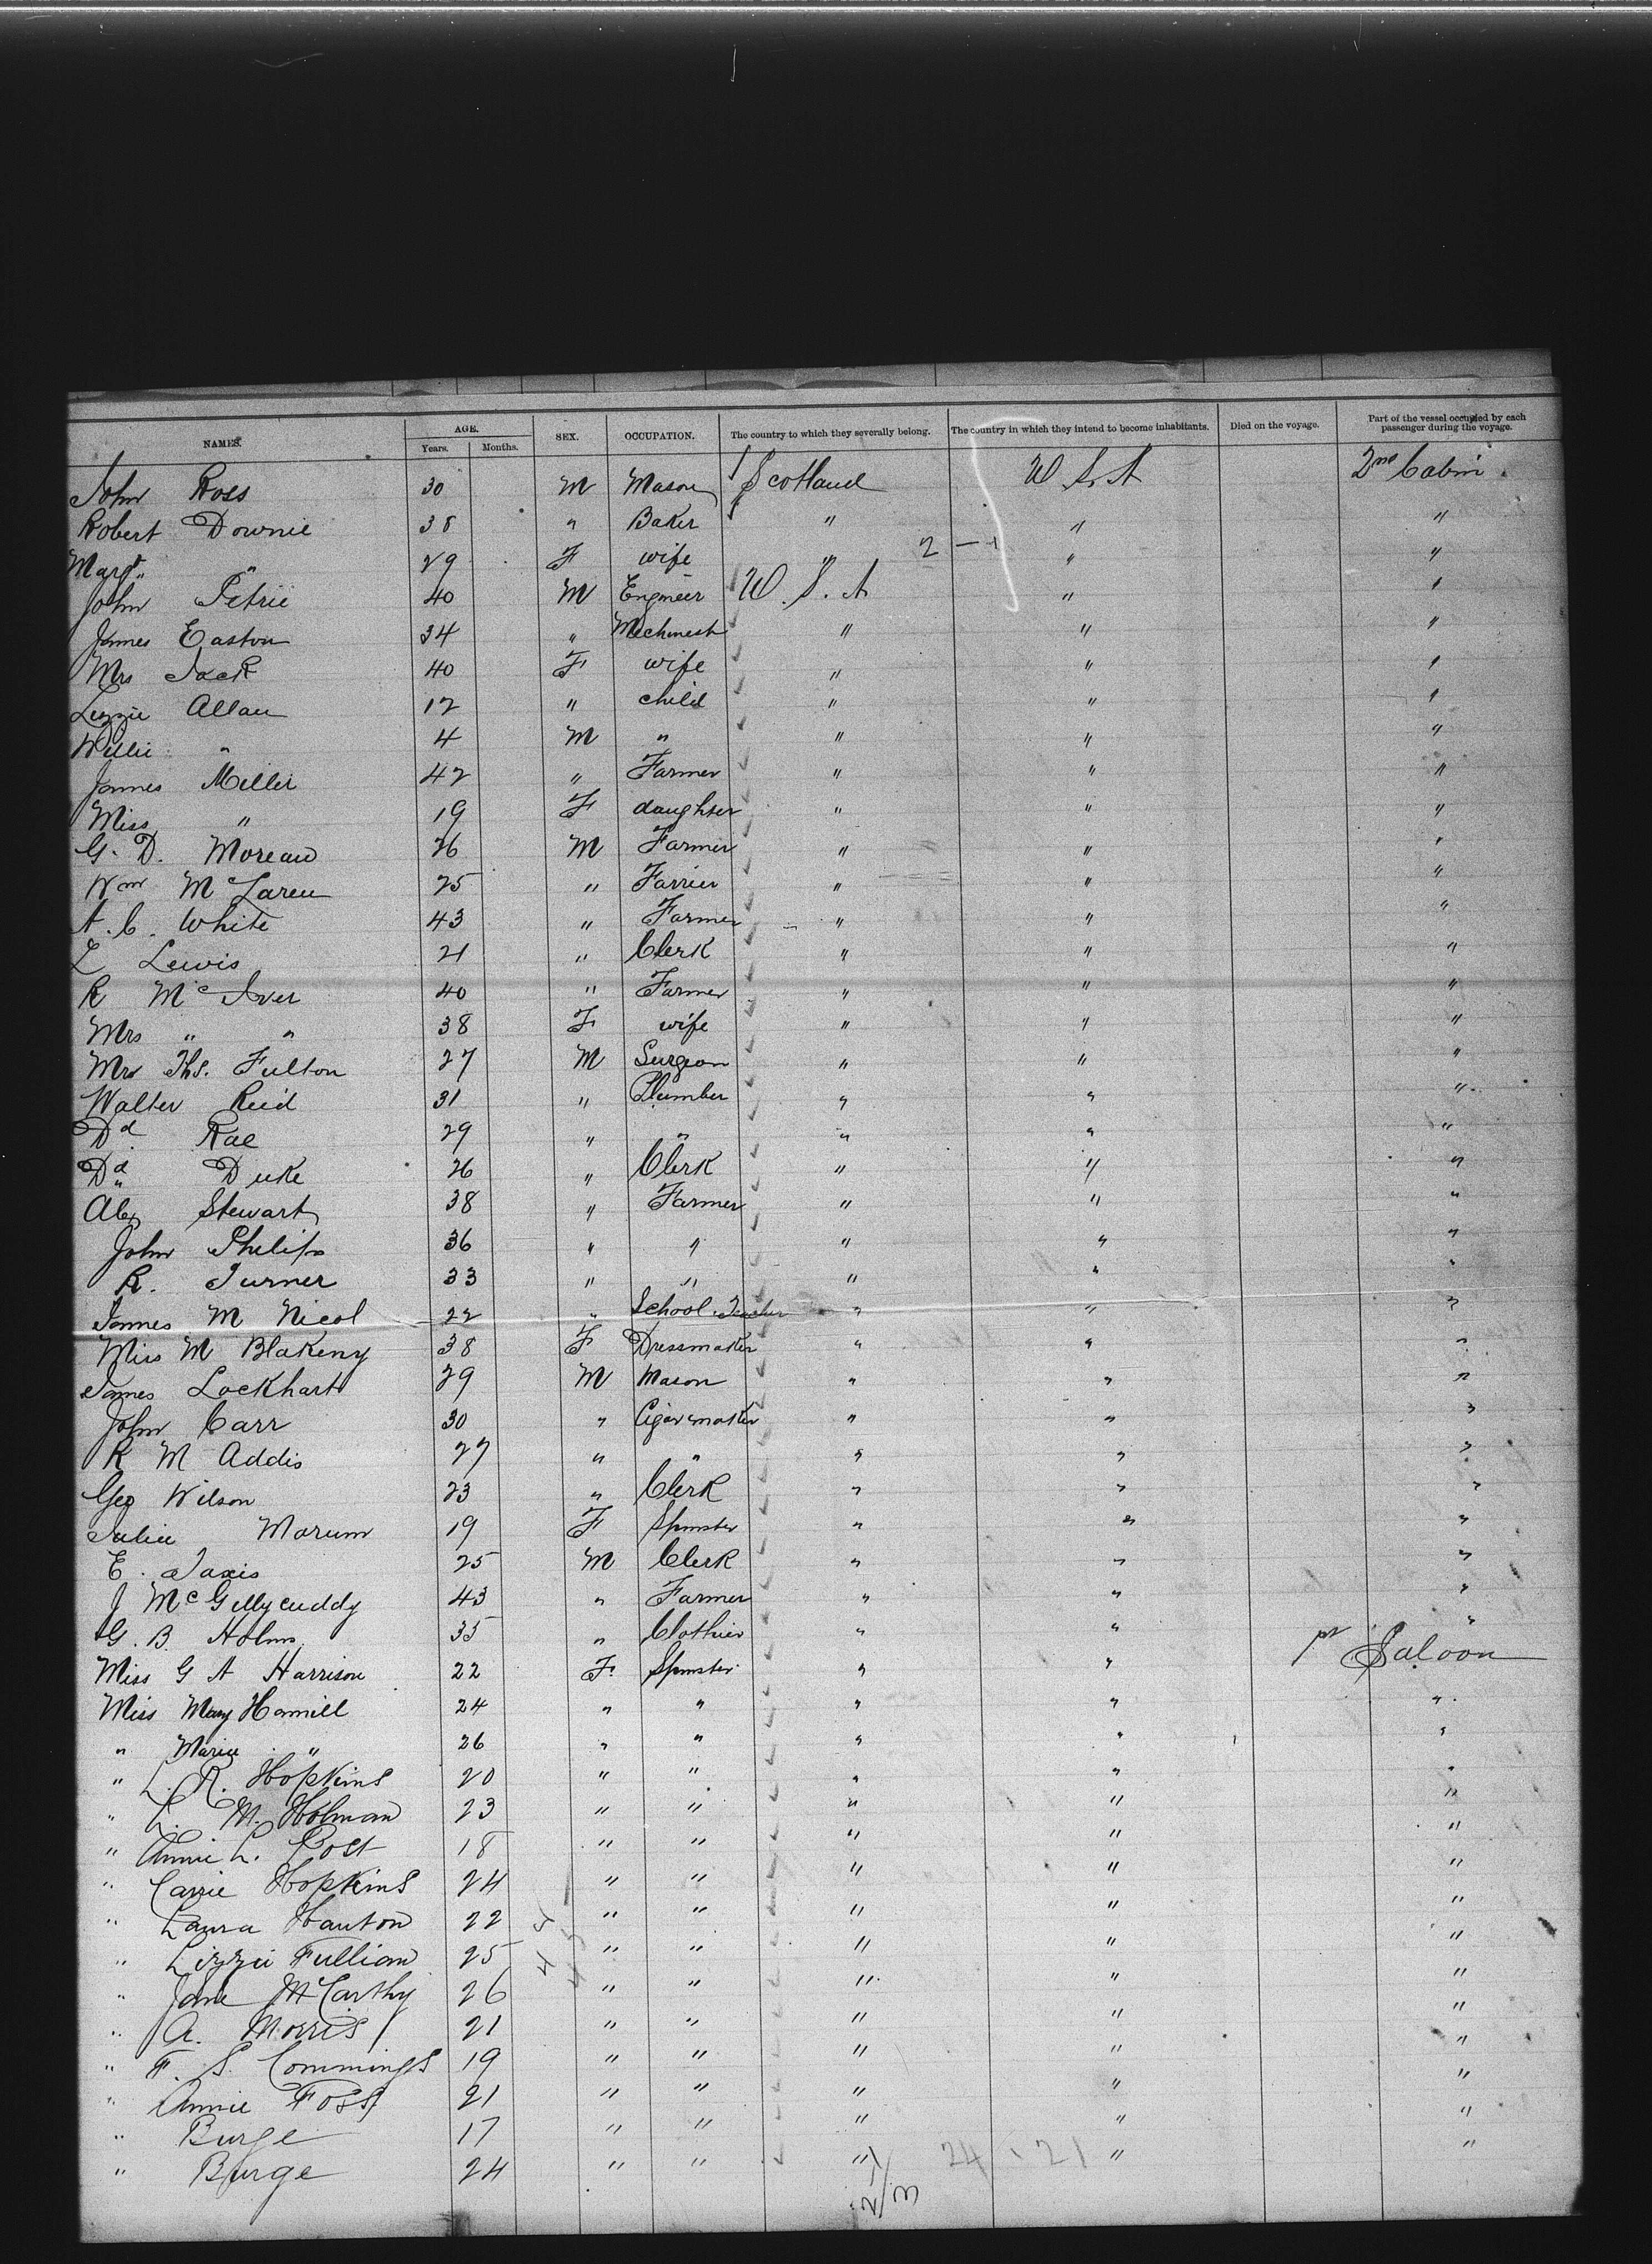 NAMES. AGE. Years. Months. SEX. OCCUPATION. The country to which they severally belong. The country in which they intend to become inhabitants. Died on the voyage. Part of the vessel occupied by each passenger during the voyage.
John Ross 30 M Mason Scotland U S A 2nd Cabin
Robert Downie 38 " Baker " " "
Margt " " 29 F wife " 2 — 1 " "
John Petrie 40 M Engineer U. S. A " "
James Easton 34 " Mechinest " " "
Mrs Jack 40 F wife " " "
Lizzie Allan 12 " child " " "
Willie " 4 M " " " "
James Miller 42 " Farmer " " "
Miss " 19 F daughter " " "
G. D. Moreau 26 M Farmer " " "
Wm McLaren 25 " Farrier " " "
A. C. White 43 " Farmer " " "
L Lewis 21 " Clerk " " "
R McIver 40 " Farmer " " "
Mrs " " 38 F wife " " "
Mr Ths. Fulton 27 M Surgeon " " "
Walter Reid 31 " Plumber " " "
Dd Rae 29 " " " " "
Dd " Duke 26 " Clerk " " "
Alex Stewart 38 " Farmer " " "
John Philips 36 " " " " "
R. Turner 33 " " " " "
James M Nicol 22 " School Teacher " " "
Miss M Blakeny 38 F Dressmaker " " "
James Lockhart 29 M Mason " " "
John Carr 30 " Cigar maker " " "
R M Addis 27 " " " " "
Geo Wilson 23 " Clerk " " "
Julia Morum 19 F Spinster " " "
E. Taxis 25 M Clerk " " "
J McGillycuddy 43 " Farmer " " "
G. B. Holms 35 " Clothier " " "
Miss G A Harrison 22 F. Spinster " " Saloon
Miss Mary Hamill 24 " " " " "
" Maria " 26 " " " " "
" L. R. Hopkins 20 " " " " "
" L. M. Holman 23 " " " " "
" Annie L. Post 18 " " " " "
" Carrie Hopkins 24 " " " " "
" Laura Hanton 22 " " " " "
" Lizzie Fulliam 25 " " " " "
" Jane McCarthy 26 " " " " "
" A. Morris 21 " " " " "
" F. S. Commings 19 " " " " "
" Annie Foss 21 " " " " "
" Burge 17 " " " " "
" Burge 24 " " " 24 21 " "